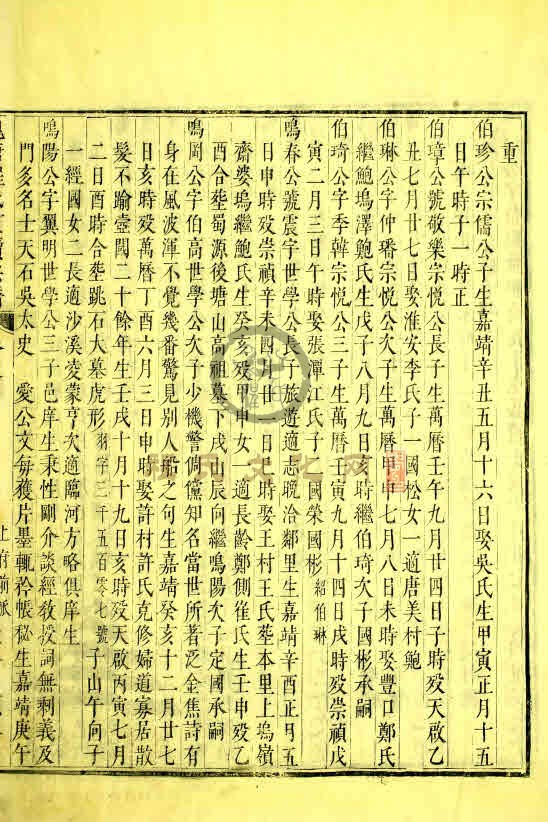 重
伯珍公宗儒公子生嘉靖辛丑五月十六日娶吳氏生甲寅正月十五
日午時子一時正
伯璋公號敬樂宗悅公長子生萬曆壬午九月廿四日子時歿天啟乙
丑七月廿七日娶淮安李氏子一國松女一適唐美村鮑
伯琳公字仲璠宗悅公次子生萬曆甲申七月八日未時娶豐口鄭氏
繼鮑塢澤鮑氏生戊子八月九日亥時繼伯琦次子國彬承嗣
伯琦公字季韓宗悅公三子生萬曆壬寅九月十四日戌時歿崇禎戊
寅二月三日午時娶張潭江氏子二國榮國彬紹伯琳
鳴春公號震宇世學公長子旅遊適志睨洽鄰里生嘉靖辛酉正月五
日申時歿崇禎辛未四月廿日戌時娶王村王氏葬本里上塢嶺
齋婆塢繼鮑氏生癸亥歿甲申女一適長齡鄭側崔氏生壬申歿乙
酉合塟蜀源後塘山高祖墓下戌山辰向繼鳴陽次子定國承嗣
鳴岡公字伯高世學公次子少機警倜儻知名當世所著泛金焦詩有
身在風波渾不覺幾番驚見别人船之句生嘉靖癸亥十二月廿七
日亥時歿萬曆丁酉六月三日申時娶許村許氏克修婦道寡居散
髮不踰壼閾二十餘年生壬戌十月十九日亥時歿天啟丙寅七月
二日酉時合塟跳石大墓虎形羽字三千五百零七號子山午向子
一經國女二長適沙溪凌蒙亨次適臨河方略俱庠生
鳴陽公字翼明世學公三子邑庠生秉性剛介談經教授詞無剩義及
門多名士天石吳太史 愛公文每獲片墨輒矜帳秘生嘉靖庚午